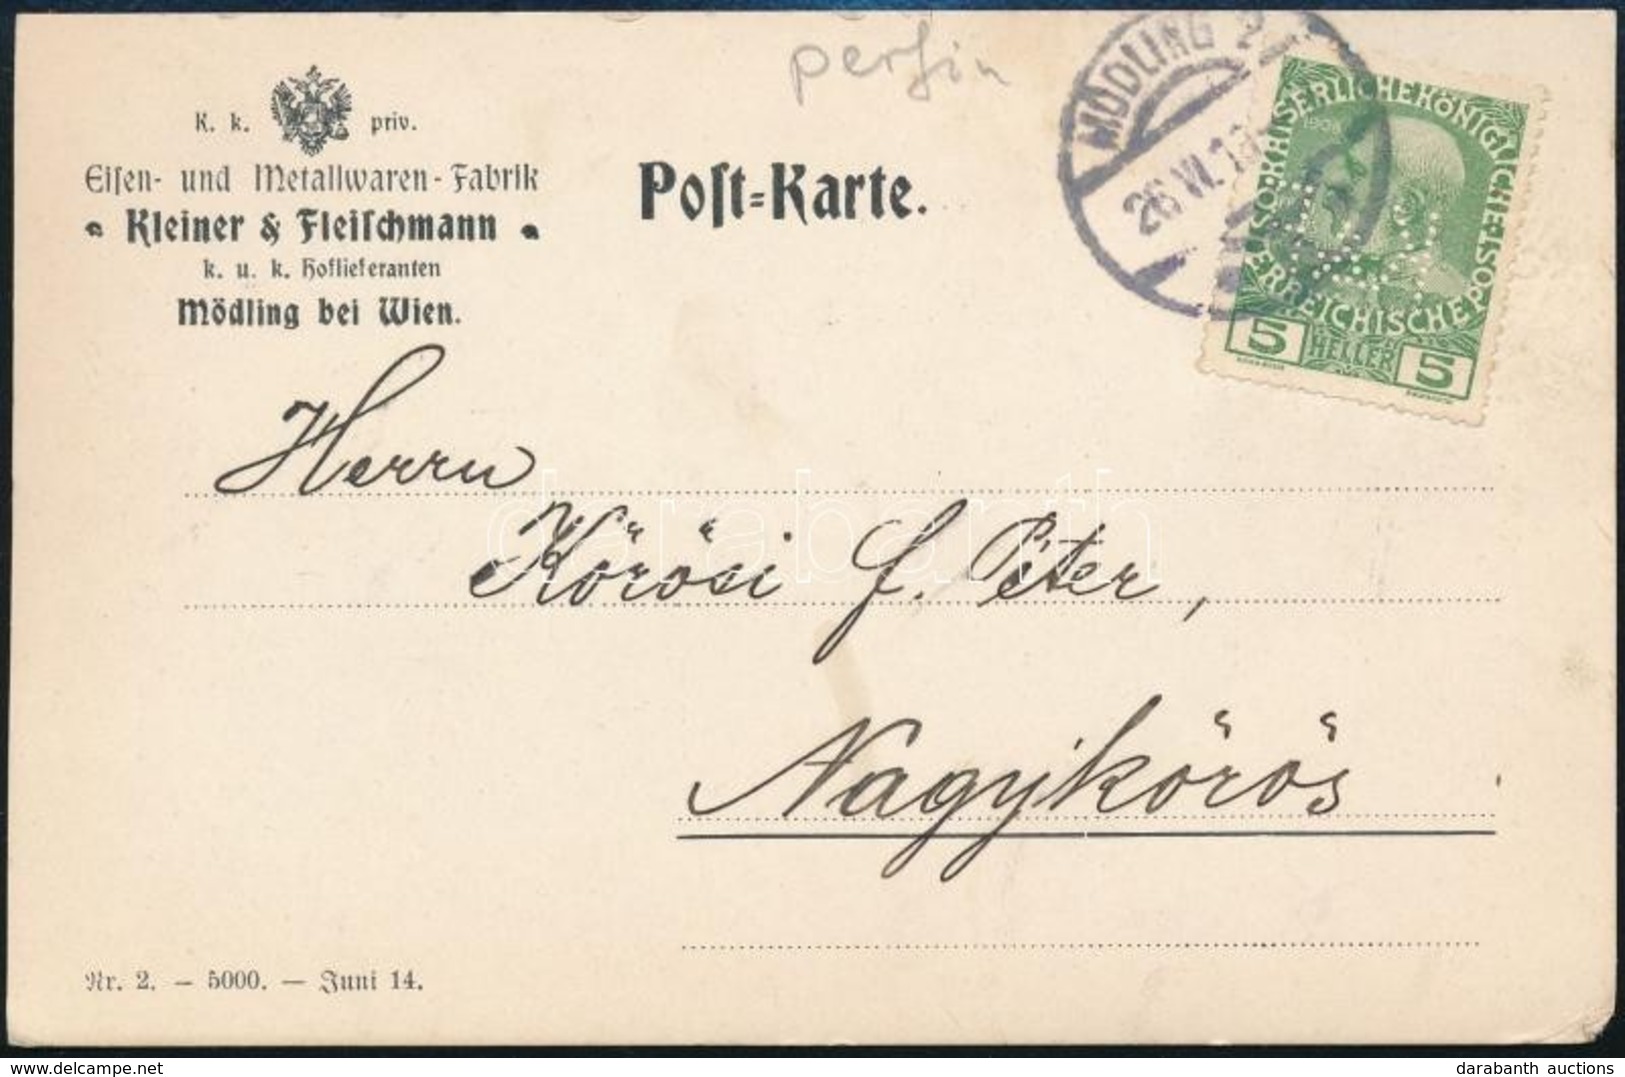 perfin
K. k. priv.
Eisen- und Metallwaren-Fabrik
Kleiner & Fleischmann
k. u. k. Hoflieferanten
Mödling bei Wien.
Post-Karte.
MÖDLING 2
26.VI.1
KAISERLICHE KÖNIGLICHE
ÖSTERREICHISCHE POST
1908
5 HELLER 5
Herrn
Körösi f. Péter,
Nagykörös
Nr. 2. — 5000. — Juni 14.
darabanth
darabanth auctions